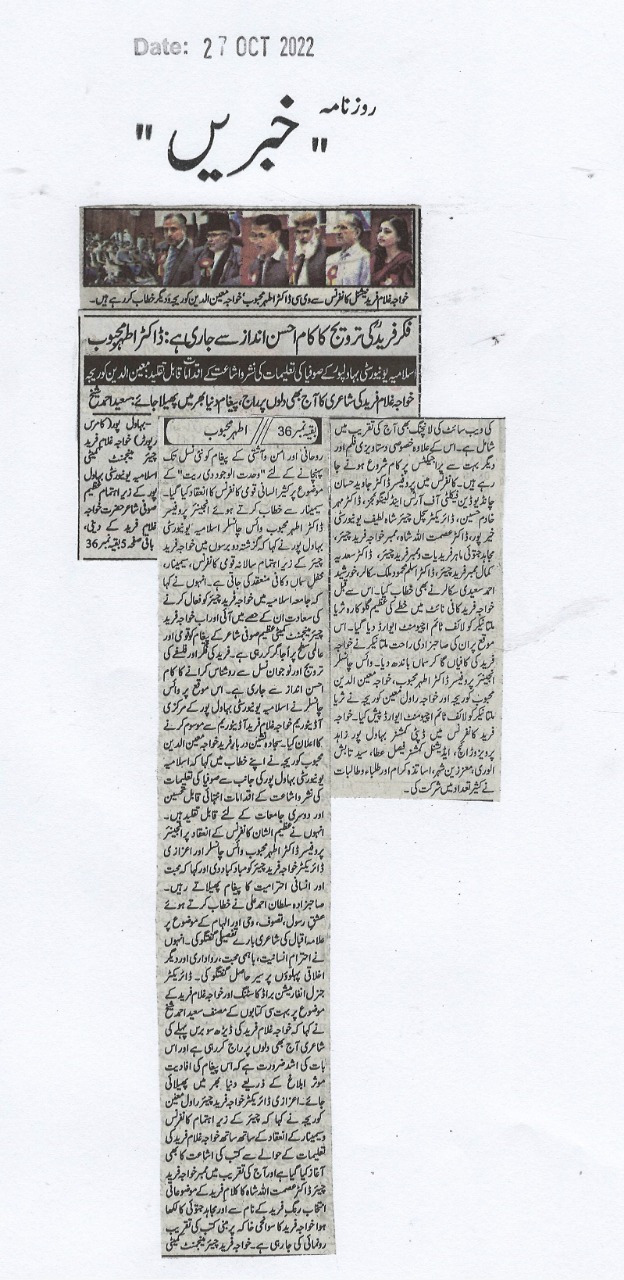 Date: 27 OCT 2022
روزنامہ
"خبریں"
خواجہ غلام فرید نیشنل کانفرنس سے وی سی ڈاکٹر اطہر محبوب، خواجہ معین الدین کوریجہ و دیگر خطاب کر رہے ہیں۔
فکر فریدؒ کی ترویج کا کام احسن انداز سے جاری ہے: ڈاکٹر اطہر محبوب
اسلامیہ یونیورسٹی بہاولپور کے صوفیا کی تعلیمات کی نشر و اشاعت کے اقدامات قابل تقلید: معین الدین کوریجہ
خواجہ غلام فرید کی شاعری کا آج بھی دلوں پر راج، پیغام دنیا بھر میں پھیلایا جائے: سعید احمد شیخ
بہاول پور (کامرس
رپورٹر) خواجہ غلام فرید
چیئر مینجمنٹ کمیٹی
اسلامیہ یونیورسٹی بہاول
پور کے زیر اہتمام عظیم
صوفی شاعر حضرت خواجہ
غلام فرید کے دینی،
باقی صفحہ 5 بقیہ نمبر 36
بقیہ نمبر 36 // اطہر محبوب
روحانی اور امن و آشتی کے پیغام کو نئی نسل تک
پہنچانے کے لئے "وحدت الوجود دی ریت" کے
موضوع پر کثیر اللسانی قومی کانفرنس کا انعقاد کیا گیا۔
سیمینار سے خطاب کرتے ہوئے انجینئر پروفیسر
ڈاکٹر اطہر محبوب وائس چانسلر اسلامیہ یونیورسٹی
بہاول پور نے کہا کہ گزشتہ دو برسوں میں خواجہ فرید
چیئر کے زیر اہتمام سالانہ قومی کانفرنس، سیمینار،
محفل سماں و کافی منعقد کی جاتی ہے۔ انہوں نے کہا
کہ جامعہ اسلامیہ میں خواجہ فرید چیئر کو فعال کرنے
کی سعادت ان کے حصے میں آئی اور اب خواجہ فرید
چیئر مینجمنٹ کمیٹی عظیم صوفی شاعر کے پیغام کو قومی اور
عالمی سطح پر اجاگر کر رہی ہے۔ فرید کی فکر اور فلسفے کی
ترویج اور نوجوان نسل سے روشناس کرانے کا کام
احسن انداز سے جاری ہے۔ اس موقع پر وائس
چانسلر نے اسلامیہ یونیورسٹی بہاول پور کے مرکزی
آڈیٹوریم خواجہ غلام فرید آڈیٹوریم سے موسوم کرنے
کا اعلان کیا۔ سجادہ نشین دربار فرید خواجہ معین الدین
محبوب کوریجہ نے اپنے خطاب میں کہا کہ اسلامیہ
یونیورسٹی بہاول پور کی جانب سے صوفیا کی تعلیمات
کی نشر و اشاعت کے اقدامات انتہائی قابل تحسین
اور دوسری جامعات کے لئے قابل تقلید ہیں۔
انہوں نے عظیم الشان کانفرنس کے انعقاد پر انجینئر
پروفیسر ڈاکٹر اطہر محبوب وائس چانسلر اور اعزازی
ڈائریکٹر خواجہ فرید چیئر کو مبارکباد دی اور کہا کہ محبت
اور انسانی احترامیت کا پیغام پھیلاتے رہیں۔
صاحبزادہ سلطان احمد علی نے خطاب کرتے ہوئے
عشق رسول، تصوف، وحی اور الہام کے موضوع پر
علامہ اقبال کی شاعری بارے تفصیلی گفتگو کی۔ انہوں
نے احترام انسانیت، باہمی محبت، رواداری اور دیگر
اخلاقی پہلوؤں پر سیر حاصل گفتگو کی۔ ڈائریکٹر
جنرل انفارمیشن براڈ کاسٹنگ اور خواجہ غلام فرید کے
موضوع پر بہت سی کتابوں کے مصنف سعید احمد شیخ
نے کہا کہ خواجہ غلام فرید کی ڈیڑھ سو برس پہلے کی
شاعری آج بھی دلوں پر راج کر رہی ہے اور اس
بات کی اشد ضرورت ہے کہ اس پیغام کی افادیت
موثر ابلاغ کے ذریعے دنیا بھر میں پھیلائی
جائے۔ اعزازی ڈائریکٹر خواجہ فرید چیئر راول معین
کوریجہ نے کہا کہ چیئر کے زیر اہتمام کانفرنس
و سیمینار کے انعقاد کے ساتھ ساتھ خواجہ غلام فرید کی
تعلیمات کے حوالے سے کتب کی اشاعت کا بھی
آغاز کیا گیا ہے اور آج کی تقریب میں ممبر خواجہ فرید
چیئر ڈاکٹر عصمت اللہ شاہ کا کلام فرید کے موضوعاتی
انتخاب رنگ فرید کے نام سے اور مجاہد جتوئی کا لکھا
ہوا خواجہ فرید کا سوانحی خاکہ پر مبنی کتب کی تقریب
رونمائی کی جا رہی ہے۔ خواجہ فرید چیئر مینجمنٹ کمیٹی
کی ویب سائٹ کی لانچنگ بھی آج کی تقریب میں
شامل ہے۔ اس کے علاوہ خصوصی دستاویزی فلم اور
دیگر بہت سے پراجیکٹس پر کام شروع ہونے جا
رہے ہیں۔ کانفرنس میں پروفیسر ڈاکٹر جاوید حسان
چانڈیو ڈین فیکلٹی آف آرٹس اینڈ لینگویجز، ڈاکٹر مہر
خادم حسین، ڈائریکٹر سچل چیئر شاہ لطیف یونیورسٹی
خیر پور، ڈاکٹر عصمت اللہ شاہ، ممبر خواجہ فرید چیئر،
مجاہد جتوئی ماہر فریدیات و ممبر فرید چیئر، ڈاکٹر سعدیہ
کمال ممبر فرید چیئر، ڈاکٹر اسلم محمود ملک سکالر، خورشید
احمد سعیدی سکالر نے بھی خطاب کیا۔ اس سے قبل
خواجہ فرید کافی نائٹ میں خطے کی عظیم گلوکارہ ثریا
ملتانیکر کو لائف ٹائم اچیومنٹ ایوارڈ دیا گیا۔ اس
موقع پر ان کی صاحبزادی راحت ملتانیکر نے خواجہ
فرید کی کافیاں گا کر سماں باندھ دیا۔ وائس چانسلر
انجینئر پروفیسر ڈاکٹر اطہر محبوب، خواجہ معین الدین
محبوب کوریجہ اور خواجہ راول معین کوریجہ نے ثریا
ملتانیکر کو لائف ٹائم اچیومنٹ ایوارڈ پیش کیا۔ خواجہ
فرید کانفرنس میں ڈپٹی کمشنر بہاول پور زاہد
پرویز وڑائچ، ایڈیشنل کمشنر فیصل عطا، سید تابش
الوری، معززین شہر، اساتذہ کرام اور طلباء و طالبات
نے کثیر تعداد میں شرکت کی۔